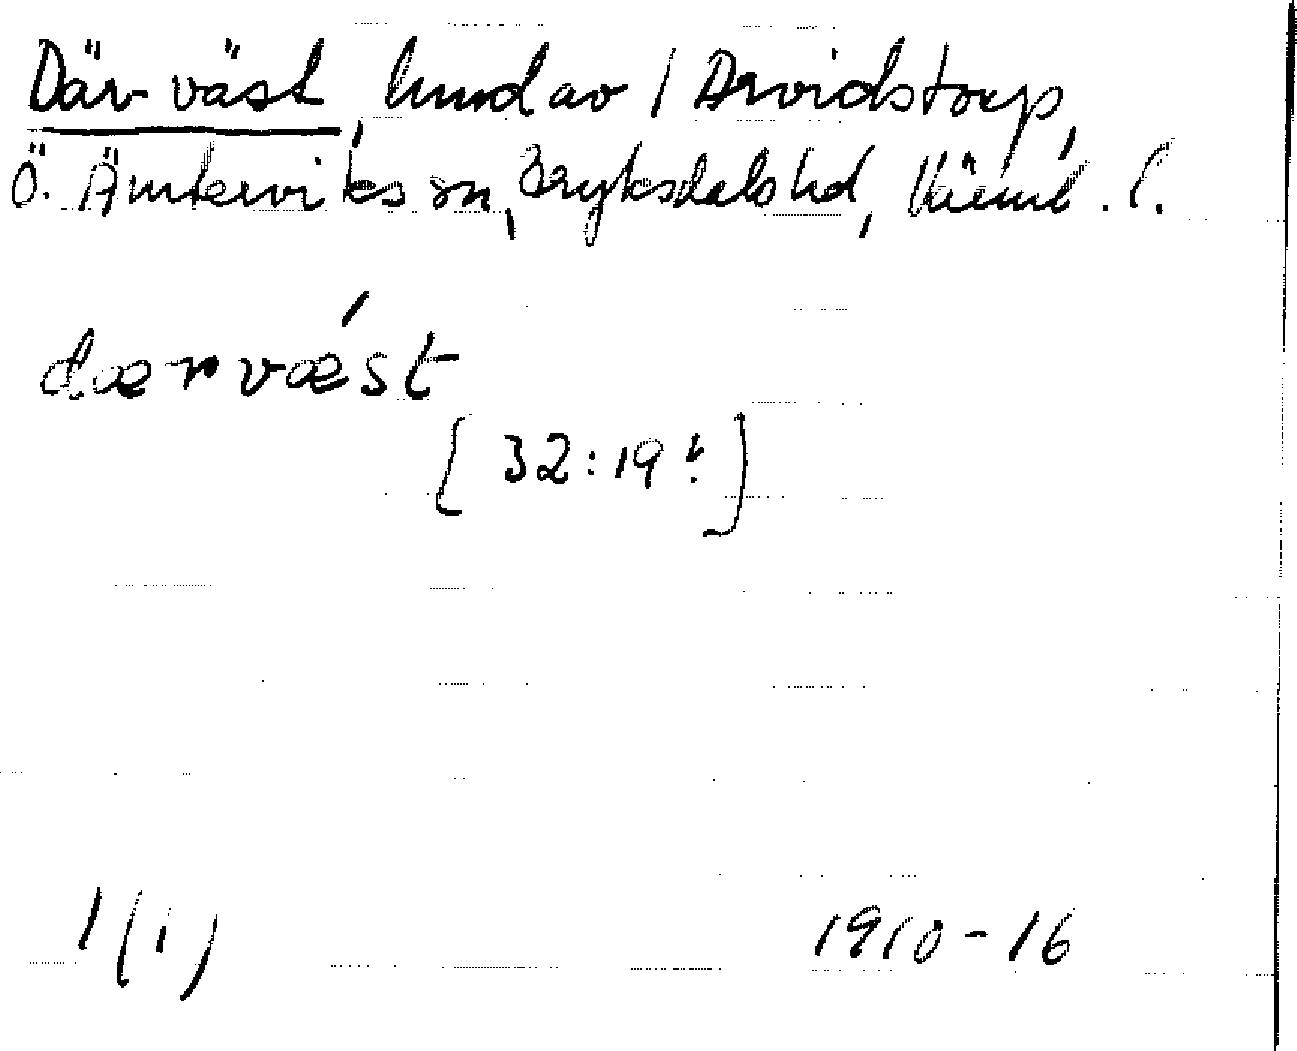 Där väst, hmd av 1 Arvidstorp,
Ö. Ämterviks sn, Fryksdals hd, Värml. l.
dærvæst
[32:19 ]
1(1) 1910-16